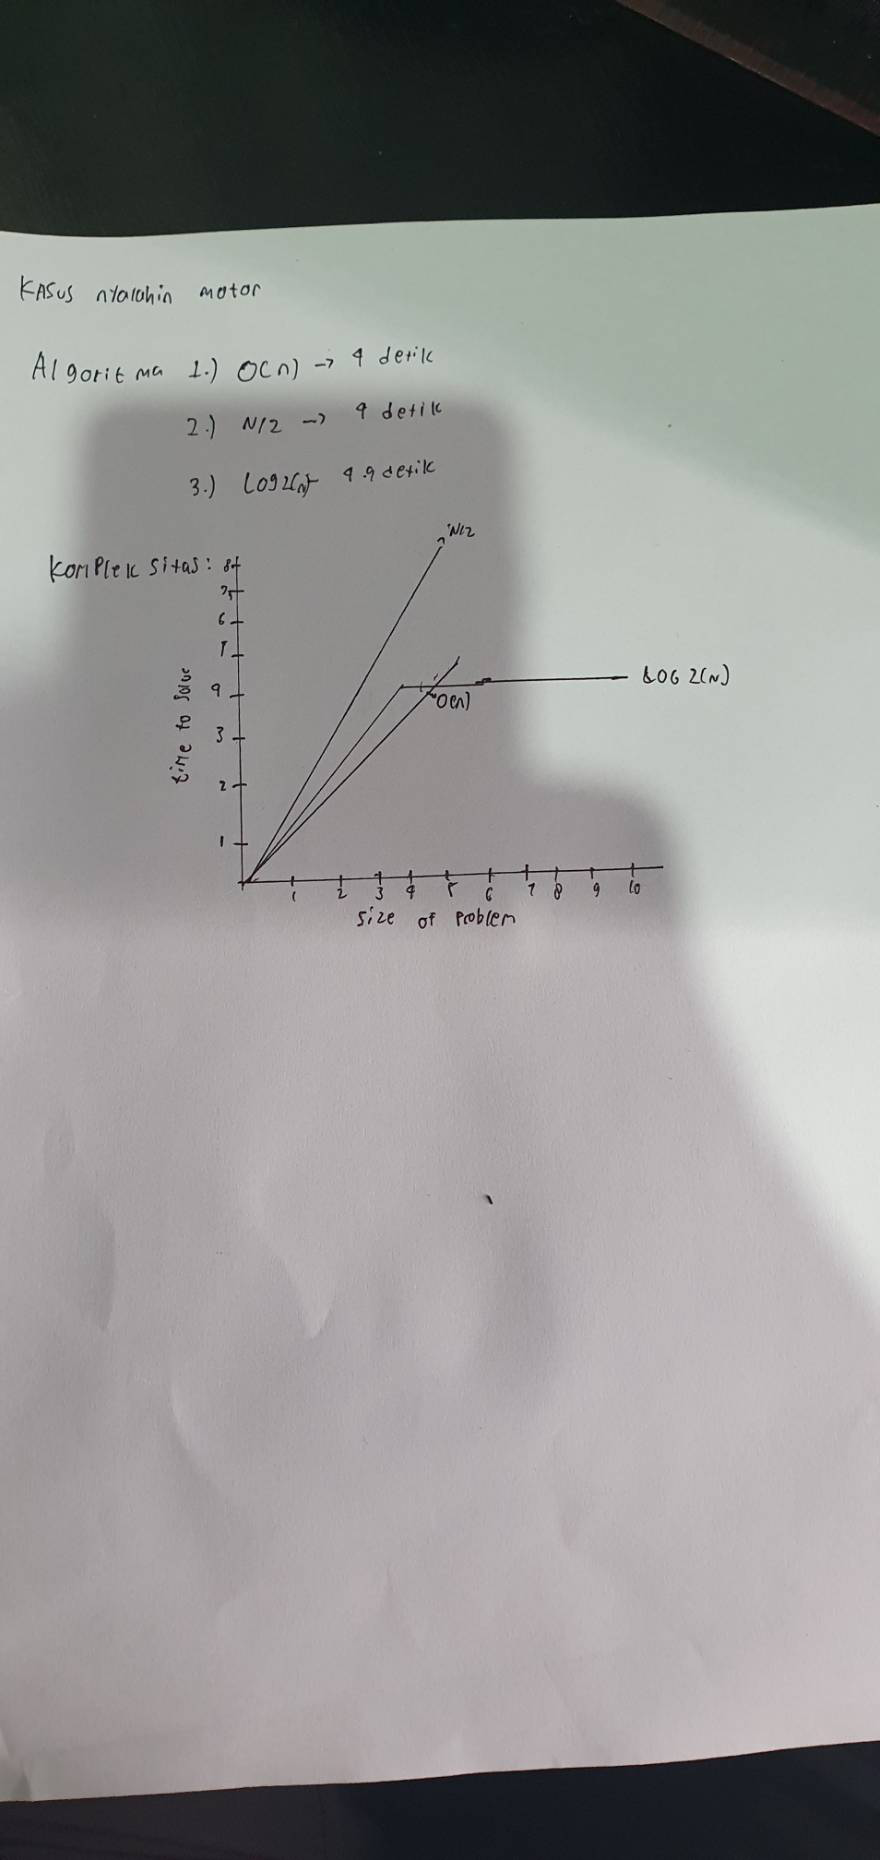 KASUS nyalahin motor
Algoritma 1.) O(n) -> 4 detik
2.) N/2 -> 4 detik
3.) LOG2(n) 4.9 detik
N/2
Komplek sitas: 8
7
6
5
LOG 2(N)
4
O(n)
3
2
1
time to solve
1 2 3 4 5 6 7 8 9 10
size of problem